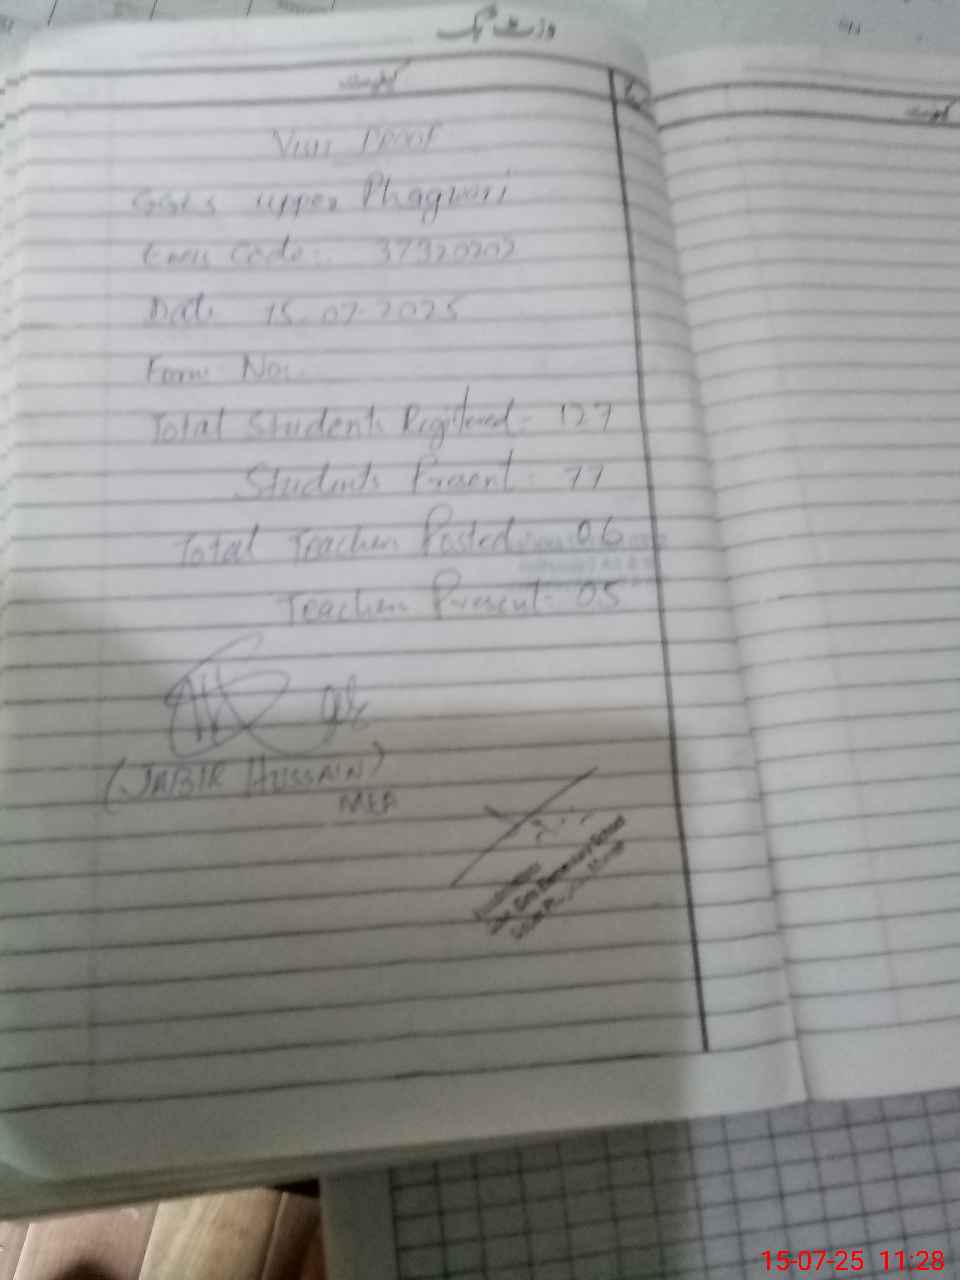 وزٹ بک
کیفیت
Visit Proof
GGES upper Phagwari
Emis Code:- 37320202
Date 15-07-2025
Form No:-
Total Students Registered:- 127
Students Present:- 77
Total Teachers Posted 06
Teachers Present:- 05
(JABIR HUSSAIN)
MEA
Elementary School
15-07-25 11:28